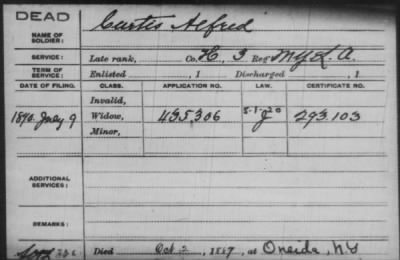 DEAD
Curtis Alfred
NAME OF SOLDIER:
SERVICE: Late rank, Co. H, 3 Reg. N.Y.L.A.
TERM OF SERVICE: Enlisted , 1 Discharged , 1
DATE OF FILING. CLASS. APPLICATION NO. LAW. CERTIFICATE NO.
Invalid,
1890. July 9 Widow, 495.306 5-1-20 293.103
Minor,
ADDITIONAL SERVICES:
REMARKS:
Died Oct , 1887, at Oneida, N.Y.